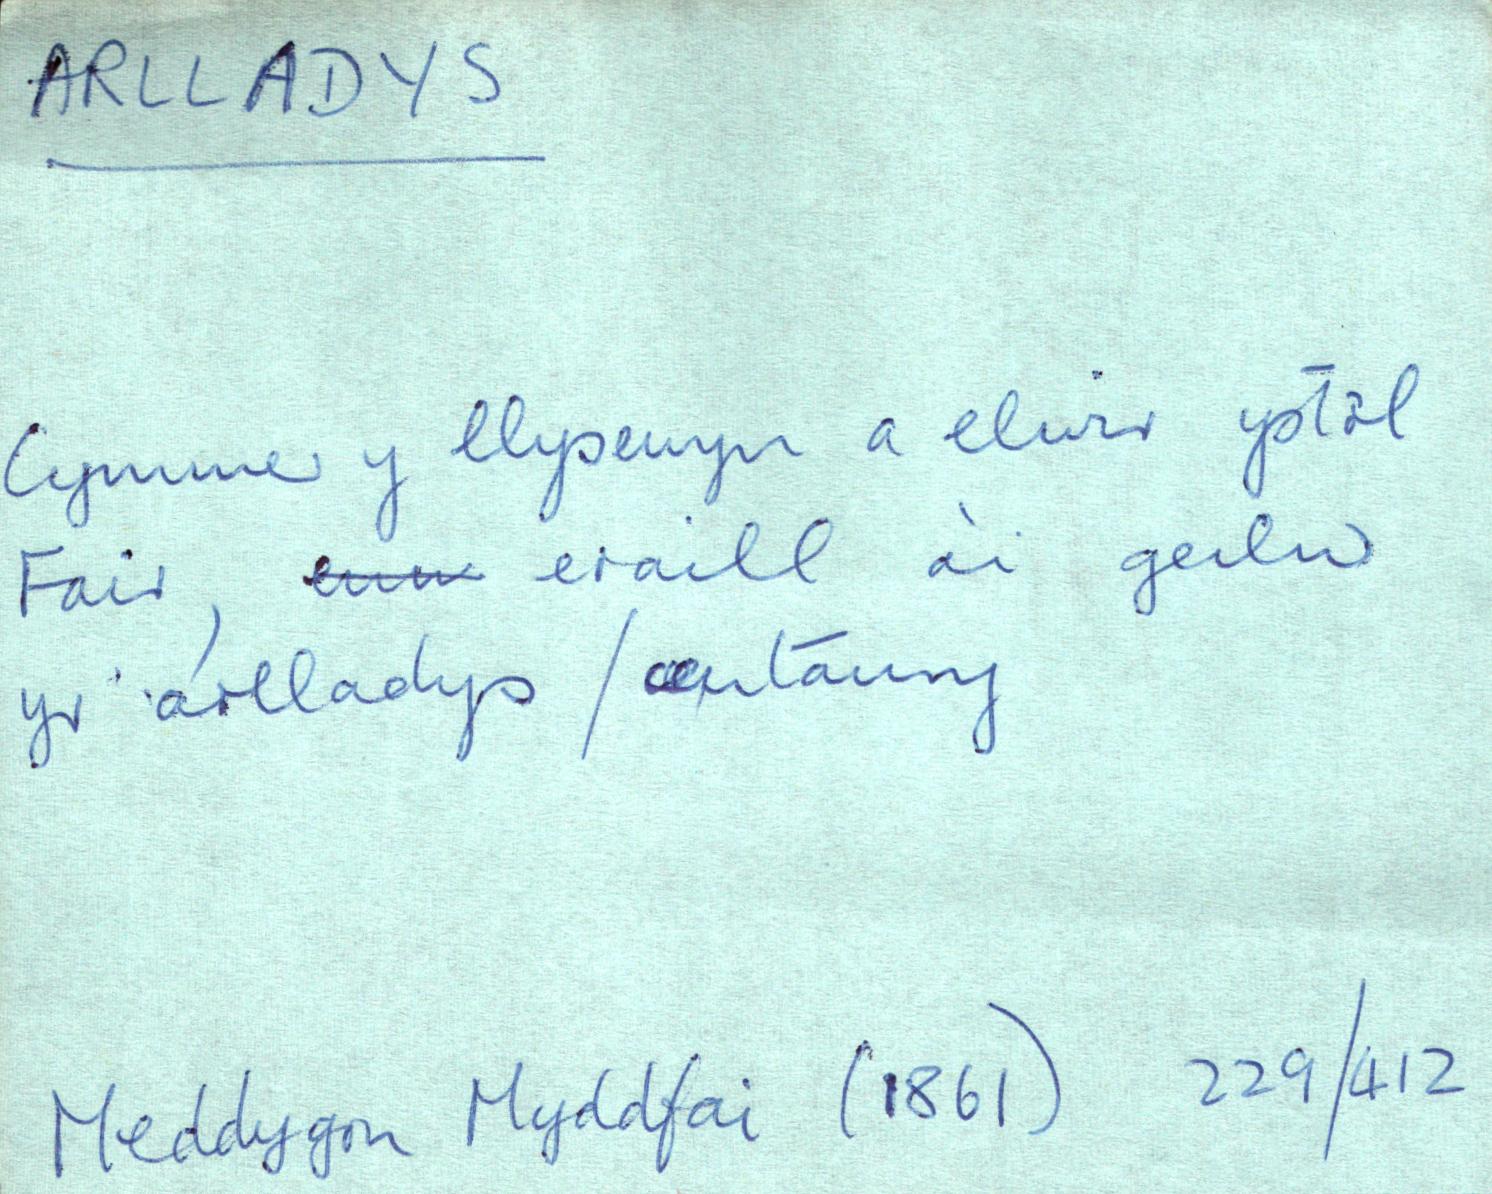 ARLLADYS
Cymmer y llysewyn a elwir ystôl
Fair, eraill ài geilw
yr arlladys / centawry
Meddygon Myddfai (1861) 229/412